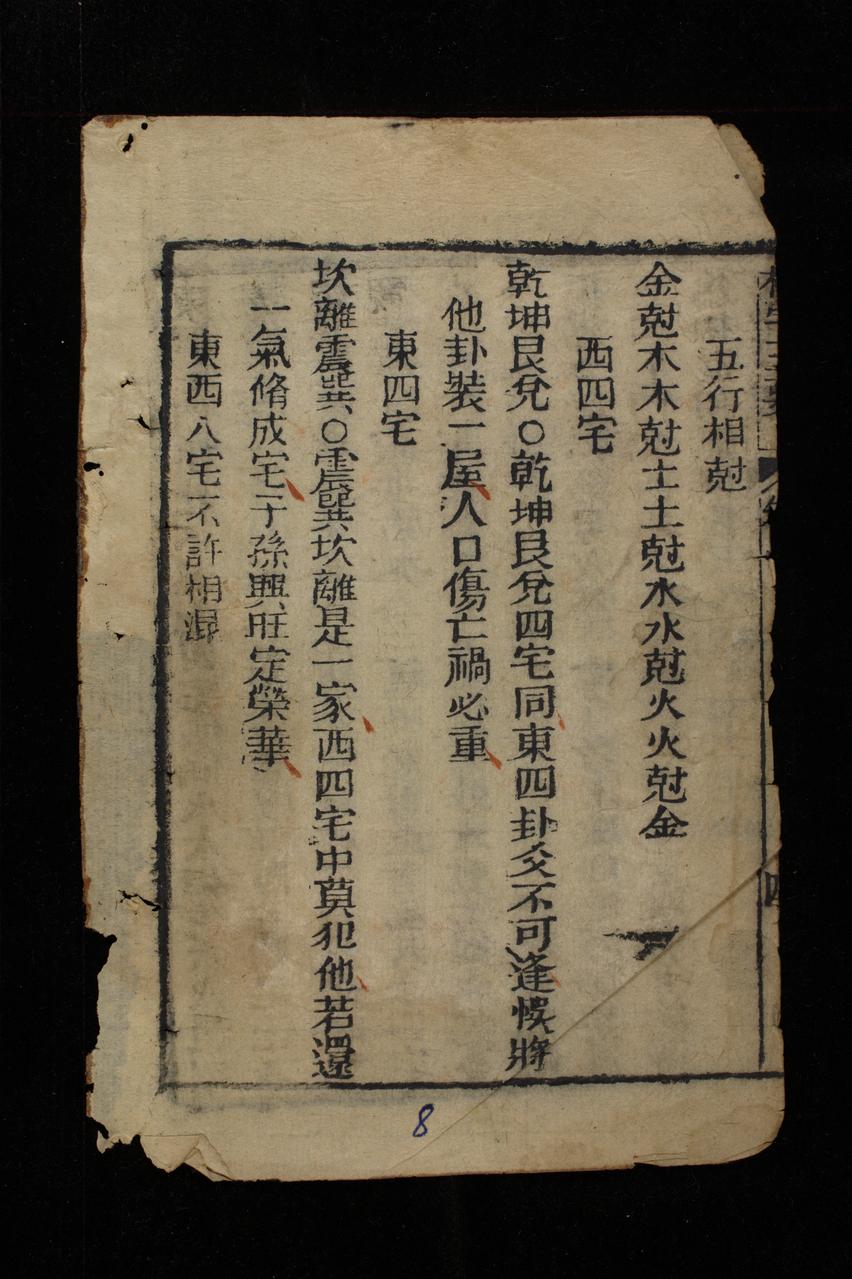 五行相尅
金尅木木尅土土尅水水尅火火尅金
西四宅
乾坤艮兌○乾坤艮兌四宅同東四卦爻不可逢悮將
他卦裝一屋人口傷亡禍必重
東四宅
坎離震巽○震巽坎離是一家西四宅中莫犯他若還
一氣脩成宅子孫興旺定榮華
東西八宅不許相混
四
8